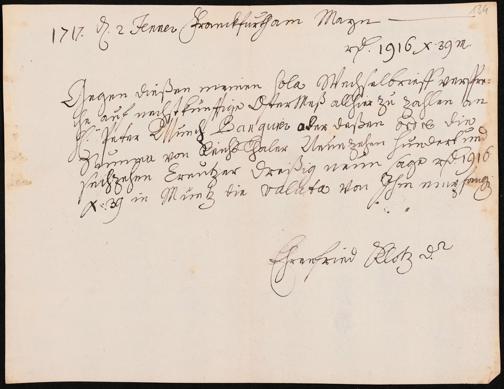 134
1717. d. 2 Jenner Franckfurth am Mayn
rd. 1916 x 39
Gegen dießen meinen sola Wechselbrieff verspre-
che auf nechstkünfftige Oster Meß allhier zu zahlen an
H. Peter Münch Banquier oder deßen ordre die
Summa von Reichsthaler Neunzehen hundert und
sechzehen Creutzer dreißig neun sage rd 1916
x 39 in Müntz die valuta von Ihm empfangen
Ehrenfried Klotz